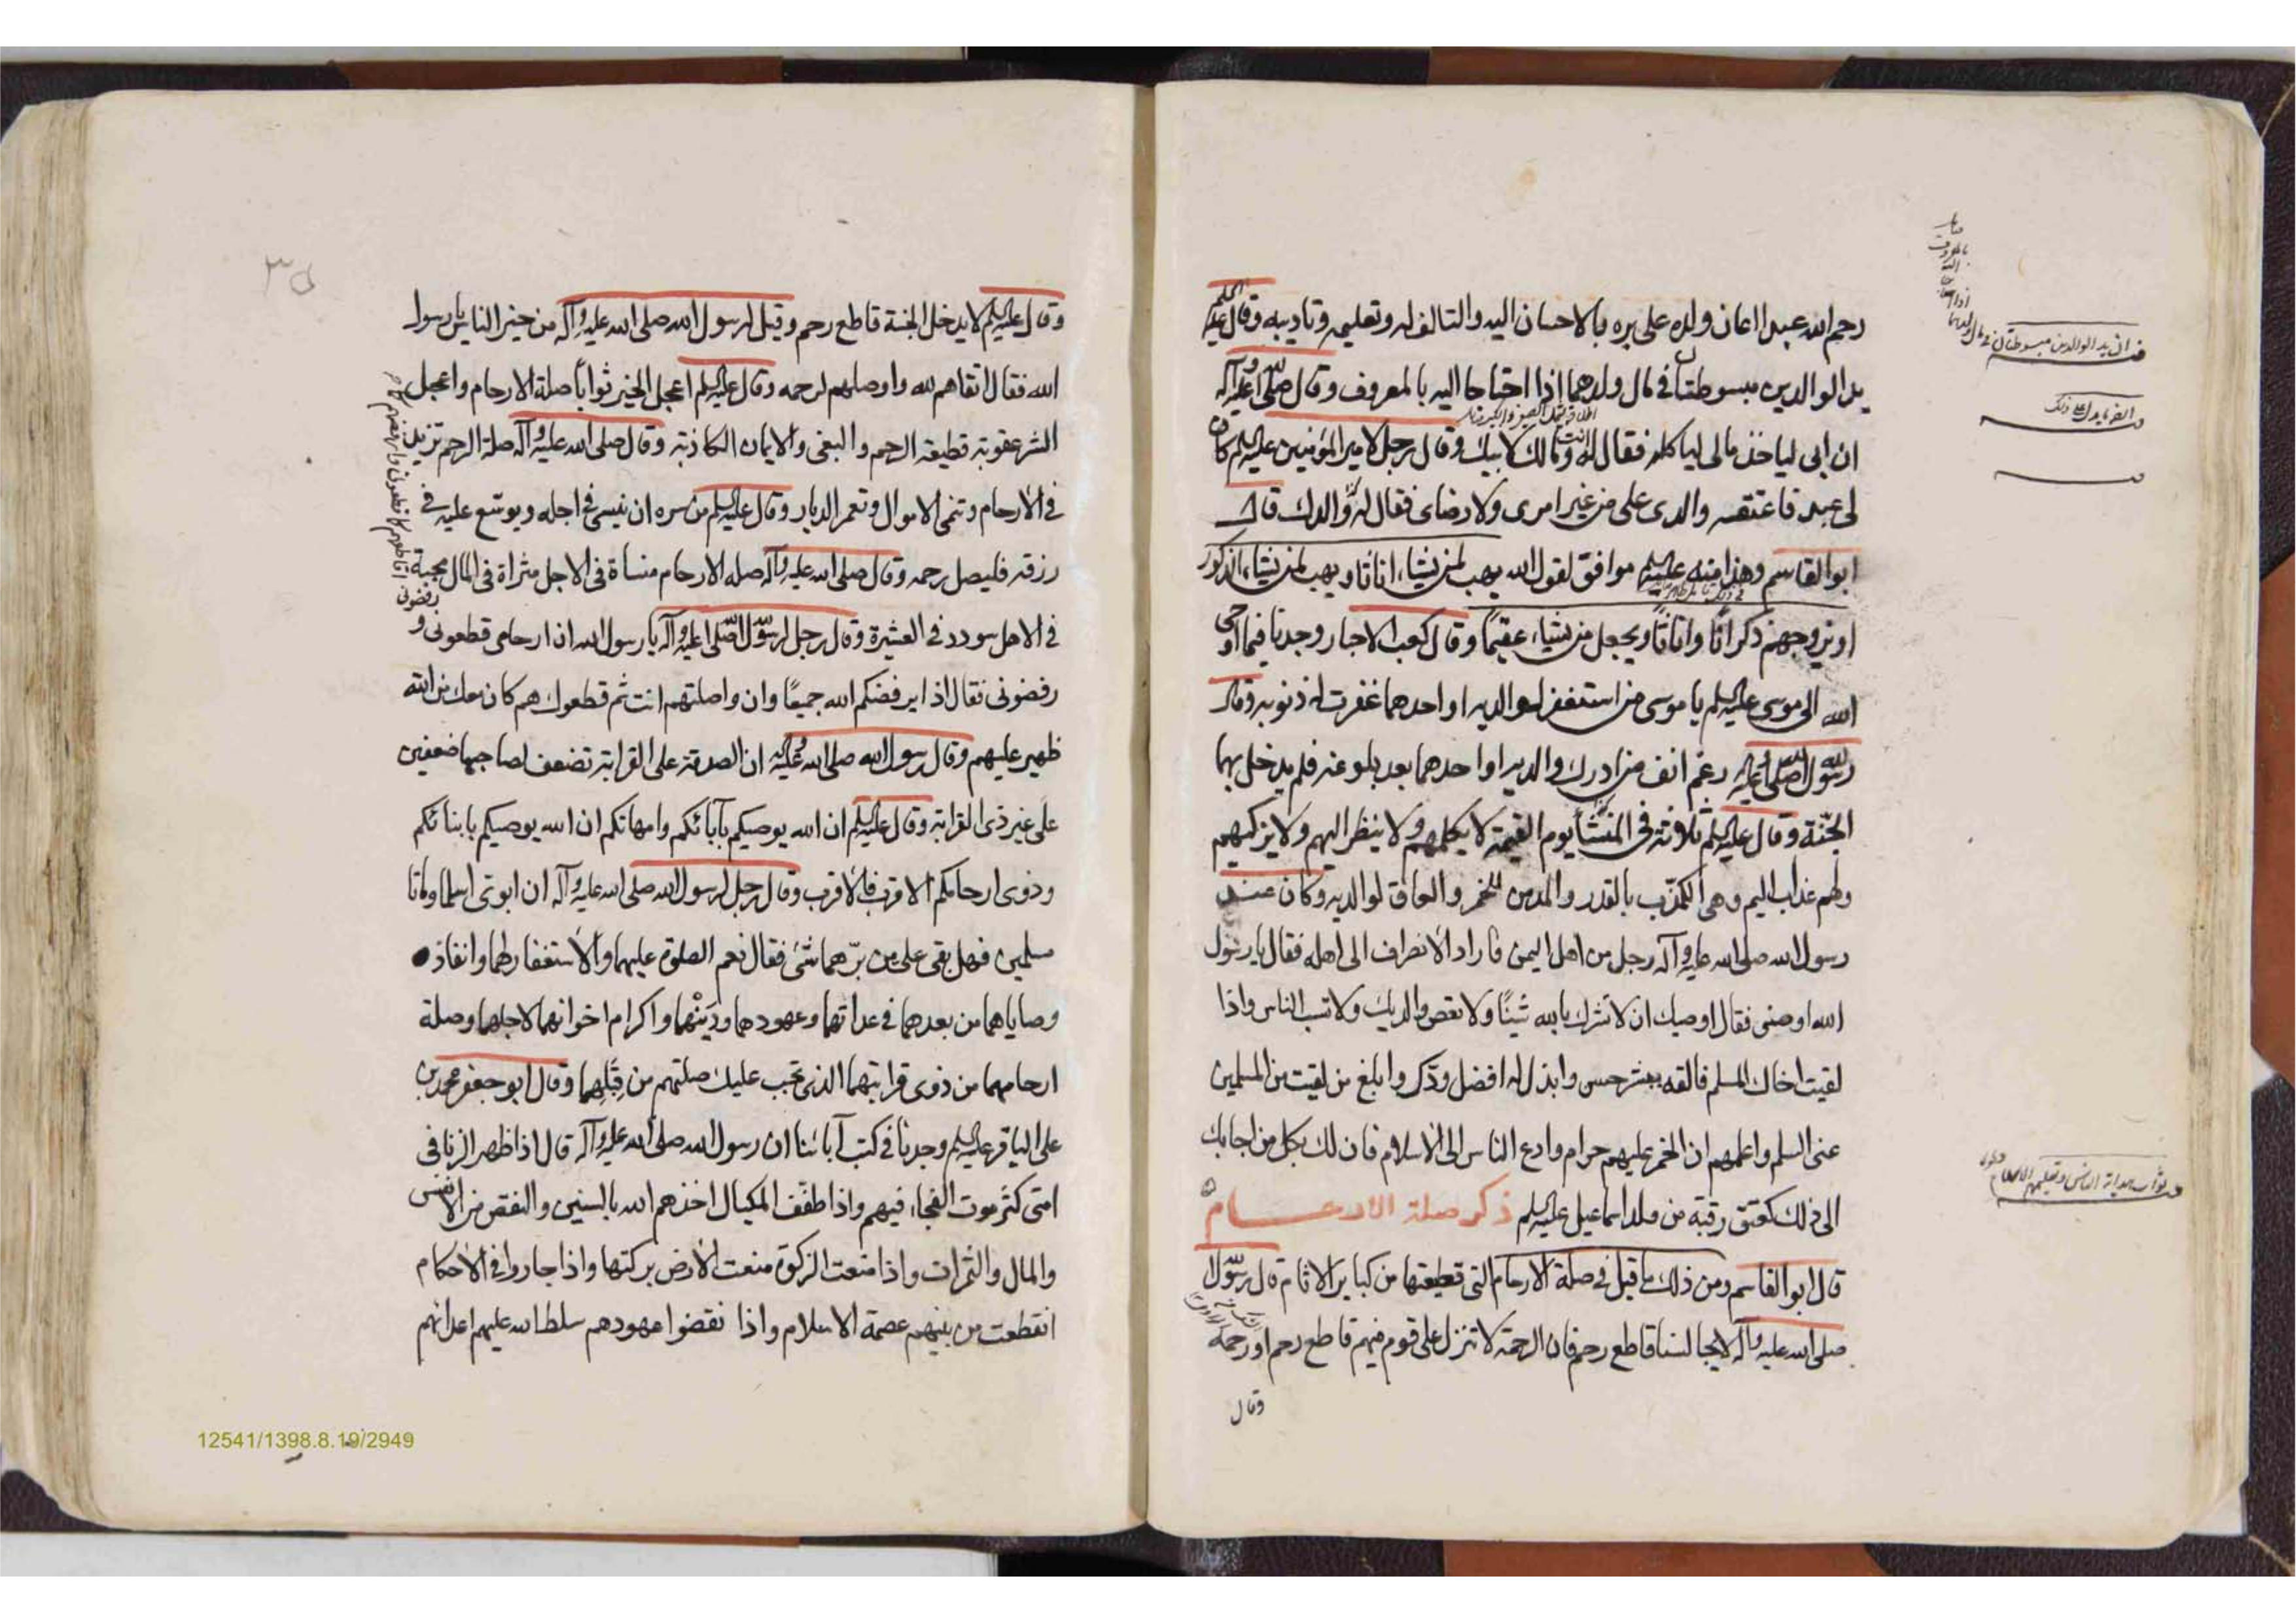 رحم الله عبدا اعان ولده على بره بالاحسان اليه والتالف له وتعليمه وتاديبه وقال عليه السلم
يد الوالدين مبسوطتان في مال ولدهما اذا احتاجا اليه بالمعروف وقال صلى الله عليه وآله
ان ابى لياخذ مالى لياكله فقال له انت ومالك لابيك وقال رجل لامير المؤمنين عليه السلم كان
لى عبد فاعتقه والدى على من غير امرى ولا رضاى فقال له والدك قال
ابو القاسم وهذا منه عليه السلم موافق لقول الله يهب لمن يشاء اناثا ويهب لمن يشاء الذكور
او يزوجهم ذكرانا واناثا ويجعل من يشاء عقيما وقال كعب الاحبار وجدنا فيما اوحى
الله الى موسى عليه السلم يا موسى من استغفر لوالديه او احدهما غفرت له ذنوبه وقال
رسول الله صلى الله عليه رغم انف من ادرك والديه او احدهما بعد بلوغه فلم يدخل بهما
الجنة وقال عليه السلم ثلاثة في المنشأ يوم القيمة لا يكلمهم ولا ينظر اليهم ولا يزكيهم
ولهم عذاب اليم وهى المكذب بالقدر والمدمن للخمر والعاق لوالديه وكان عند
رسول الله صلى الله عليه وآله رجل من اهل اليمن فاراد الانصراف الى اهله فقال يا رسول
الله اوصنى فقال اوصيك ان لا تشرك بالله شيئا ولا تعص والديك ولا تسب الناس واذا
لقيت اخاك المسلم فالقه ببشر حسن وابذل له افضل ودك وابلغ من لقيت من المسلمين
عنى السلم واعلمهم ان الخمر عليهم حرام وادع الناس الى الاسلام فان لك بكل من اجابك
الى ذلك كعتق رقبة من ولد اسماعيل عليه السلم ذكر صلة الارحام
قال ابو القاسم ومن ذلك ما قيل في صلة الارحام التى قطيعتها من كباير الاثام قال رسول
صلى الله عليه وآله لا يجالسنا قاطع رحم فان الرحمة لا تنزل على قوم فيهم قاطع رحم اورحمه
وقال
ان يد الوالدين مبسوطتان في مال ولدهما
٣٥
وقال عليه السلم لا يدخل الجنة قاطع رحم وقيل لرسول الله صلى الله عليه وآله من خير الناس يا رسول
الله فقال اتقاهم لله واوصلهم لرحمه وقال عليه السلم اعجل الخير ثوابا صلة الارحام واعجل
الشر عقوبة قطيعة الرحم والبغى والايمان الكاذبة وقال صلى الله عليه وآله صلة الرحم تزيد
في الارحام وتنمى الاموال وتعمر الديار وقال عليه السلم من سره ان ينسى في اجله ويوسع عليه في
رزقه فليصل رحمه وقال صلى الله عليه وآله صلة الارحام منساة في الاجل مثراة في المال محبة
في الاهل سودد في العشيرة وقال رجل لرسول الله صلى الله عليه وآله يا رسول الله ان ارحامى قطعونى و
رفضونى فقال اذا يرفضكم الله جميعا وان واصلتهم انت ثم قطعوك هم كان معك من الله
ظهير عليهم وقال رسول الله صلى الله عليه وآله ان الصدقة على القرابة تضعف لصاحبها ضعفين
على غير ذى القرابة وقال عليه السلم ان الله يوصيكم بآبائكم وامهاتكم ان الله يوصيكم بابنائكم
وذوى ارحامكم الاقرب فالاقرب وقال رجل لرسول الله صلى الله عليه وآله ان ابوى اسلما وماتا
مسلمين فهل بقى على من برهما شئ فقال نعم الصلوة عليهما والاستغفار لهما وانفاذ
وصاياهما من بعدهما في عداتهما وعهودهما ودينهما واكرام اخوانهما لاجلهما وصلة
ارحامهما من ذوى قرابتهما الذى تجب عليك صلتهم من قبلهما وقال ابو جعفر محمد بن
على الباقر عليه السلم وجدنا في كتب آبائنا ان رسول الله صلى الله عليه وآله قال اذا ظهر الزنا في
امتى كثر موت الفجاء فيهم واذا طفف المكيال اخذهم الله بالسنين والنقص من الانفس
والمال والثمرات واذا منعت الزكوة منعت الارض بركتها واذا جاروا في الاحكام
انقطعت من بينهم عصمة الاسلام واذا نقضوا عهودهم سلط الله عليهم اعدائهم
12541/1398.8.19/2949